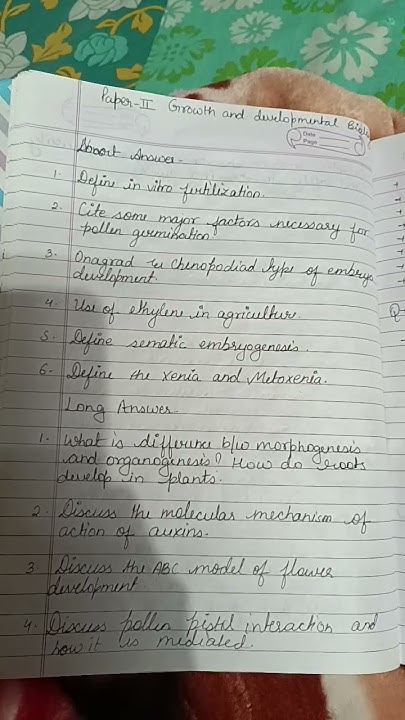 Paper-II Growth and developmental Biolo
Date
Page
Short Answer-
1. Define in vitro fertilization.
2. Cite some major factors necessary for
pollen germination.
3. Onagrad & Chenopodiad type of embryo
development.
4. Use of ethylene in agriculture.
5. Define sematic embryogenesis.
6. Define the xenia and Metoxenia.
Long Answer
1. What is difference b/w morphogenesis
and organogenesis? How do roots
develop in plants.
2. Discuss the molecular mechanism of
action of auxins.
3. Discuss the ABC model of flower
development.
4. Discuss pollen pistel interaction and
how it is mediated.
Q-